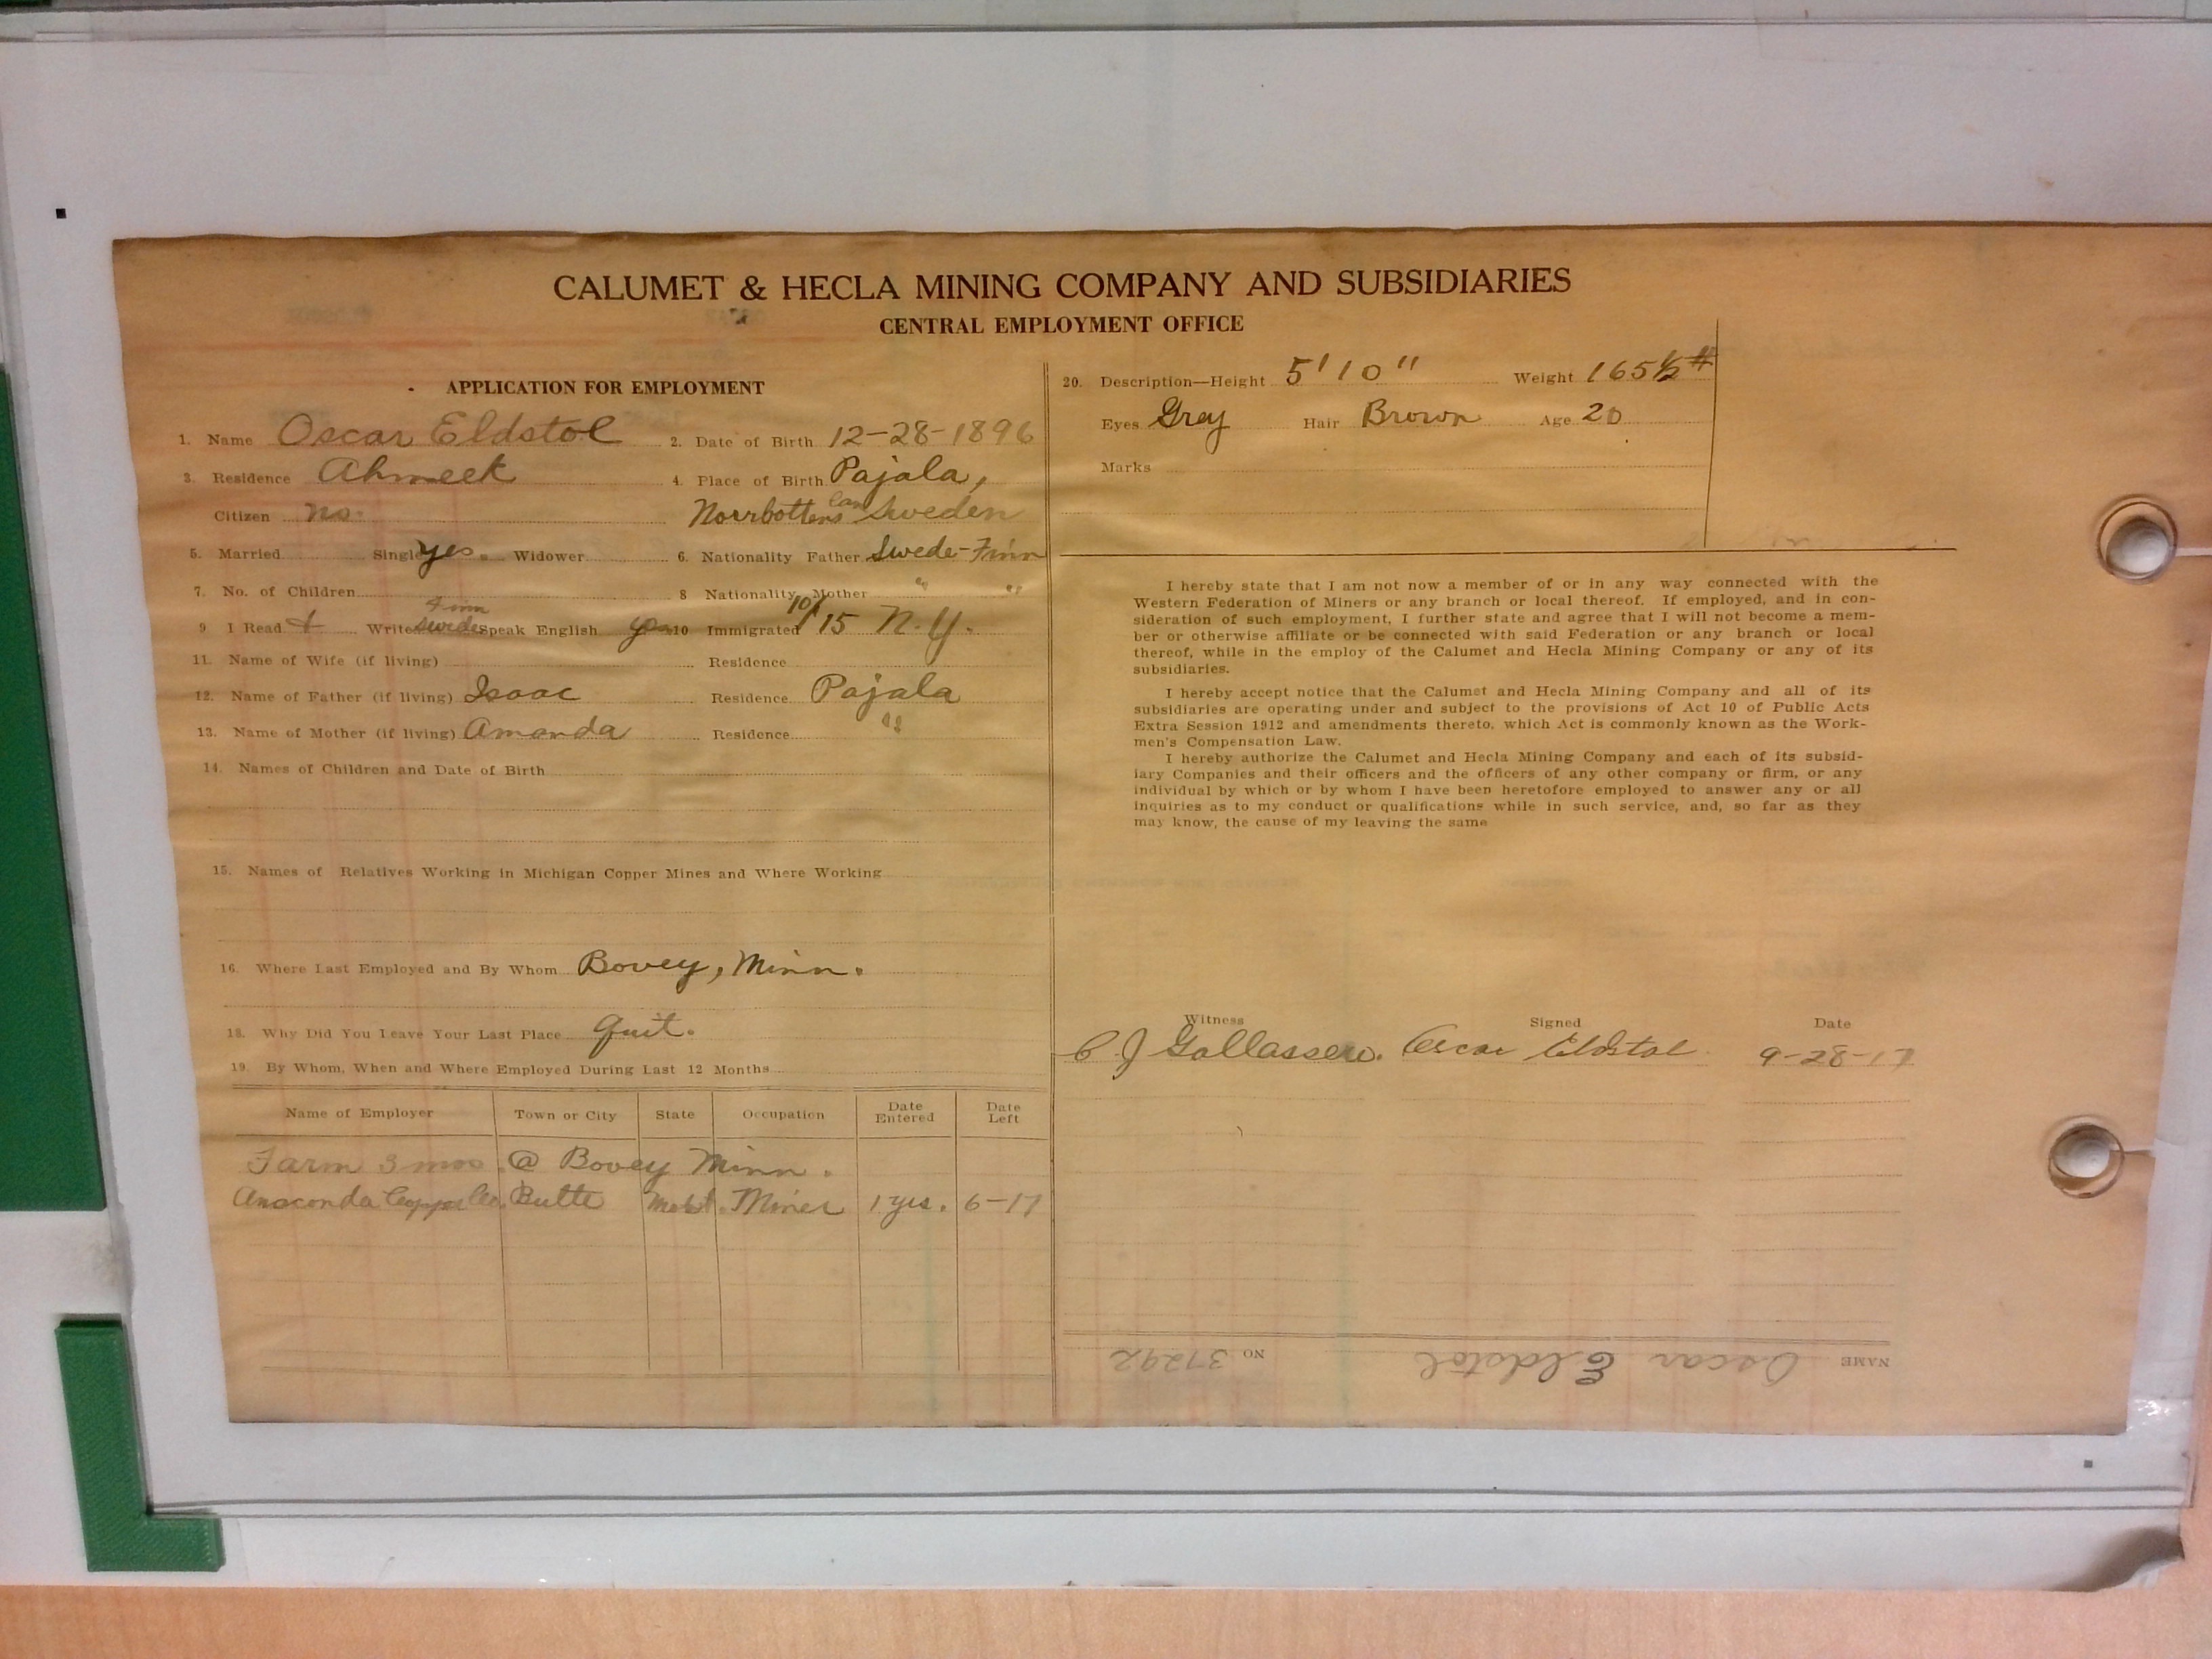 CALUMET & HECLA MINING COMPANY AND SUBSIDIARIES
CENTRAL EMPLOYMENT OFFICE
APPLICATION FOR EMPLOYMENT
1. Name Oscar Eldstol 2. Date of Birth 12-28-1896
3. Residence Ahmeek 4. Place of Birth Pajala,
Citizen no. Norrbottens lan Sweden
5. Married Single yes. Widower 6. Nationality Father Swede-Finn
7. No. of Children 8 Nationality Mother " "
9 I Read + Write Finn Swede Speak English yes 10 Immigrated 10/15 N.Y.
11. Name of Wife (if living) Residence
12. Name of Father (if living) Isaac Residence Pajala
13. Name of Mother (if living) Amanda Residence "
14. Names of Children and Date of Birth
15. Names of Relatives Working in Michigan Copper Mines and Where Working
16. Where Last Employed and By Whom Bovey, Minn.
18. Why Did You Leave Your Last Place quit.
19. By Whom, When and Where Employed During Last 12 Months
Name of Employer Town or City State Occupation Date Entered Date Left
Farm 3 mos. @ Bovey Minn.
Anaconda Copper Co. Butte Mont. Miner 1 yrs. 6-17
20. Description—Height 5'10" Weight 165½#
Eyes Grey Hair Brown Age 20
Marks
I hereby state that I am not now a member of or in any way connected with the
Western Federation of Miners or any branch or local thereof. If employed, and in con-
sideration of such employment, I further state and agree that I will not become a mem-
ber or otherwise affiliate or be connected with said Federation or any branch or local
thereof, while in the employ of the Calumet and Hecla Mining Company or any of its
subsidiaries.
I hereby accept notice that the Calumet and Hecla Mining Company and all of its
subsidiaries are operating under and subject to the provisions of Act 10 of Public Acts
Extra Session 1912 and amendments thereto, which Act is commonly known as the Work-
men's Compensation Law.
I hereby authorize the Calumet and Hecla Mining Company and each of its subsid-
iary Companies and their officers and the officers of any other company or firm, or any
individual by which or by whom I have been heretofore employed to answer any or all
inquiries as to my conduct or qualifications while in such service, and, so far as they
may know, the cause of my leaving the same
Witness Signed Date
C J Gallassew. Oscar Eldstol 9-28-17
NAME Oscar Eldstol NO 37292